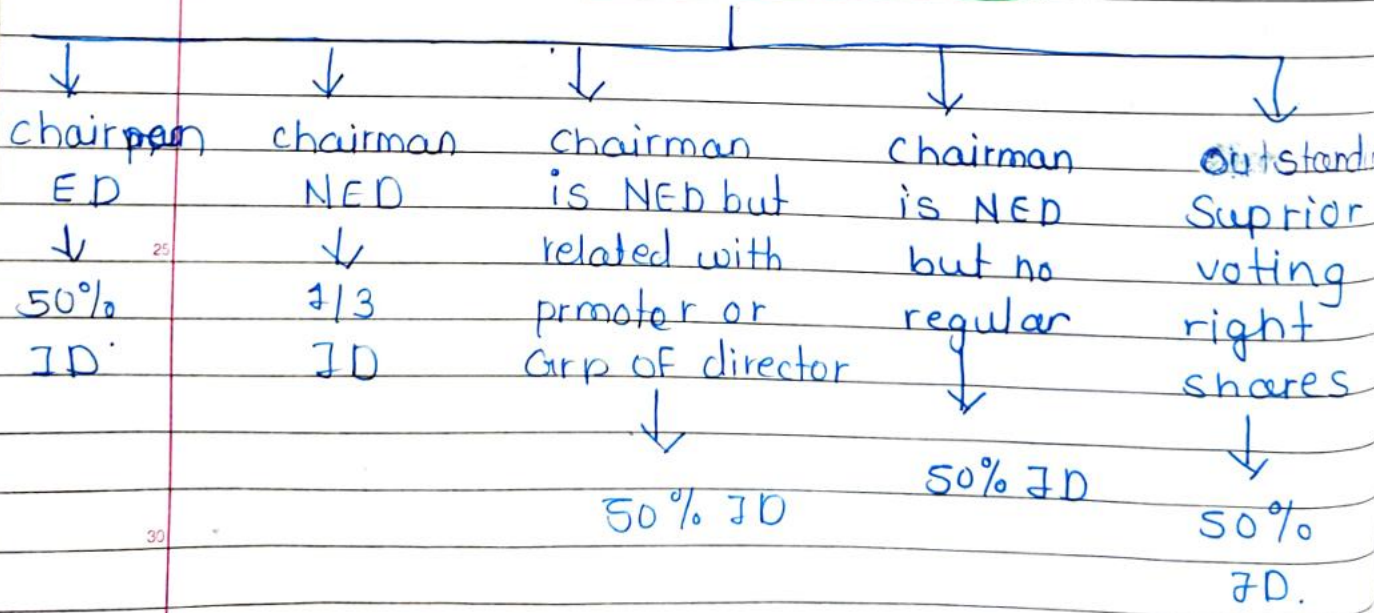 chairpean
ED
50%
ID
chairman
NED
1/3
ID
Chairman
is NED but
related with
prmoter or
Grp of director
50% ID
Chairman
is NED
but no
regular
50% ID
outstand
Suprior
voting
right
shares
50%
ID.
25
30